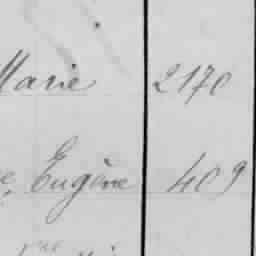 Marie 2170
Eugène 409